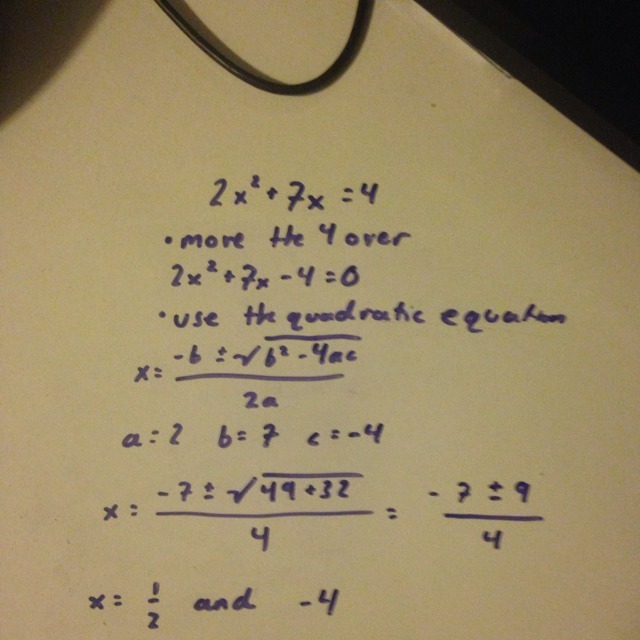 2x² + 7x = 4
• move the 4 over
2x² + 7x - 4 = 0
• use the quadratic equation
x = (-b ± √(b² - 4ac)) / 2a
a = 2 b = 7 c = -4
x = (-7 ± √(49 + 32)) / 4 = (-7 ± 9) / 4
x = 1/2 and -4